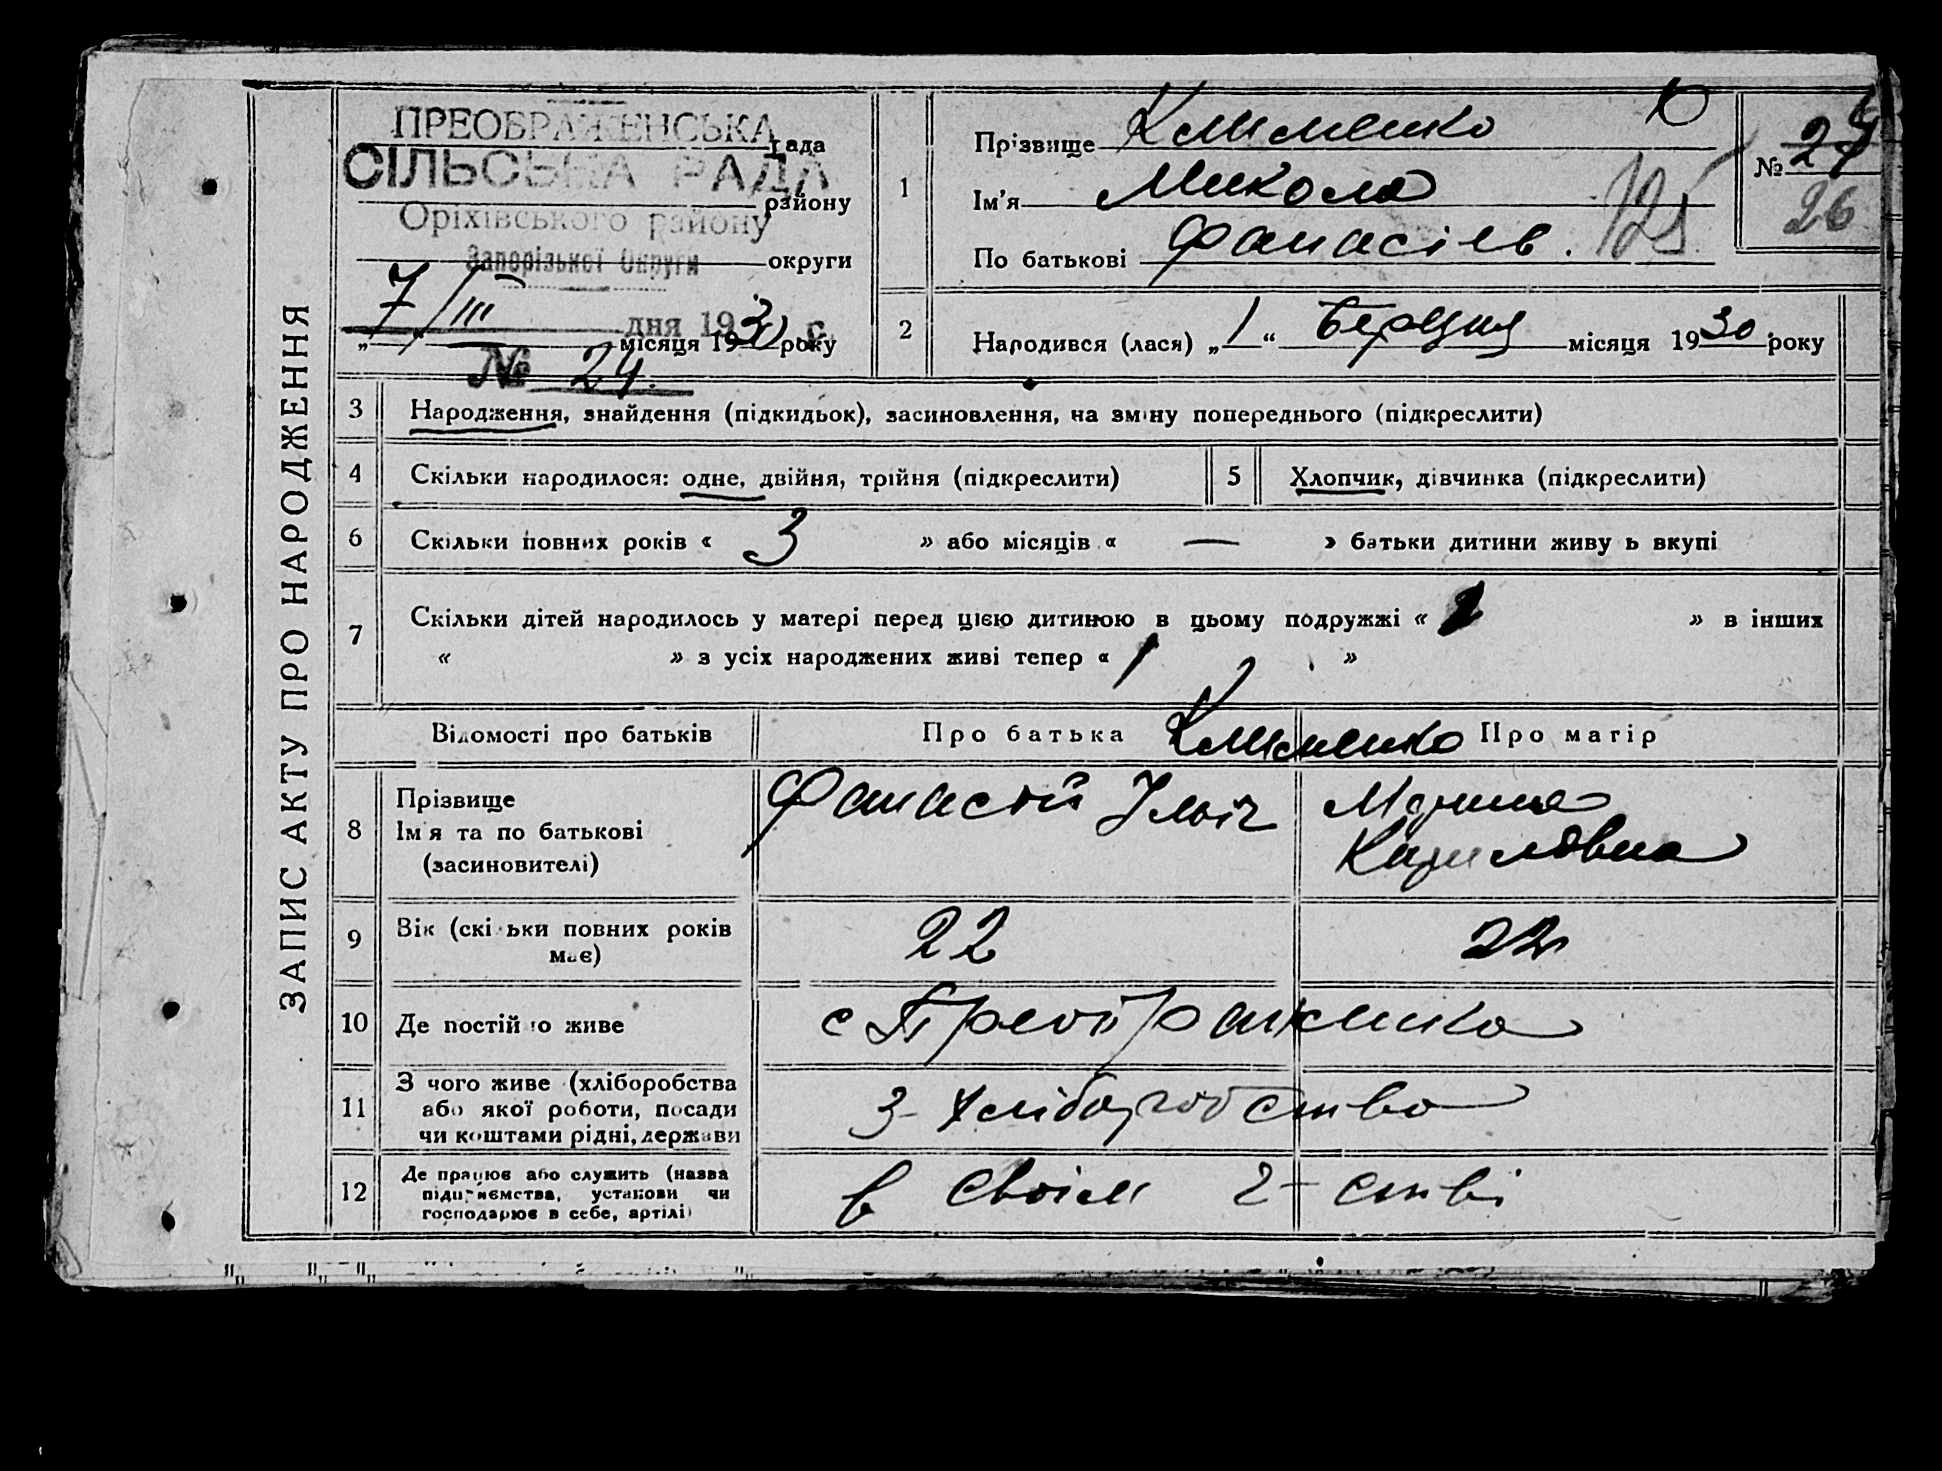 ЗАПИС АКТУ ПРО НАРОДЖЕННЯ
ПРЕОБРАЖЕНСЬКА
рада
СІЛЬСЬКА РАДА
району
Оріхівського району
Запорізької Округи
округи
7/III дня 1930 г.
„ “ місяця 1930 року
№ 24.
1
Прізвище Клименко
Ім'я Микола
По батькові Фанасієв.
125
№ 24
26
2
Народився (лася) „1“ Березня місяця 1930 року
3
Народження, знайдення (підкидьок), засиновлення, на зміну попереднього (підкреслити)
4
Скільки народилося: одне, двійня, трійня (підкреслити)
5
Хлопчик, дівчинка (підкреслити)
6
Скільки повних років « 3 » або місяців « — » батьки дитини живуть вкупі
7
Скільки дітей народилось у матері перед цією дитиною в цьому подружжі « » в інших
« » з усіх народжених живі тепер « 1 »
Відомості про батьків
Про батька
Клименко
Про матір
8
Прізвище
Ім'я та по батькові
(засиновителі)
Фанасій Ільіч
Марина
Кириловна
9
Вік (скільки повних років
має)
22
22
10
Де постійно живе
с Преображенка
11
З чого живе (хліборобства
або якої роботи, посади
чи коштами рідні, держави
З-хліборобство
12
Де працює або служить (назва
підприємства, установи чи
господарює в себе, артілі)
в своїм г-стві